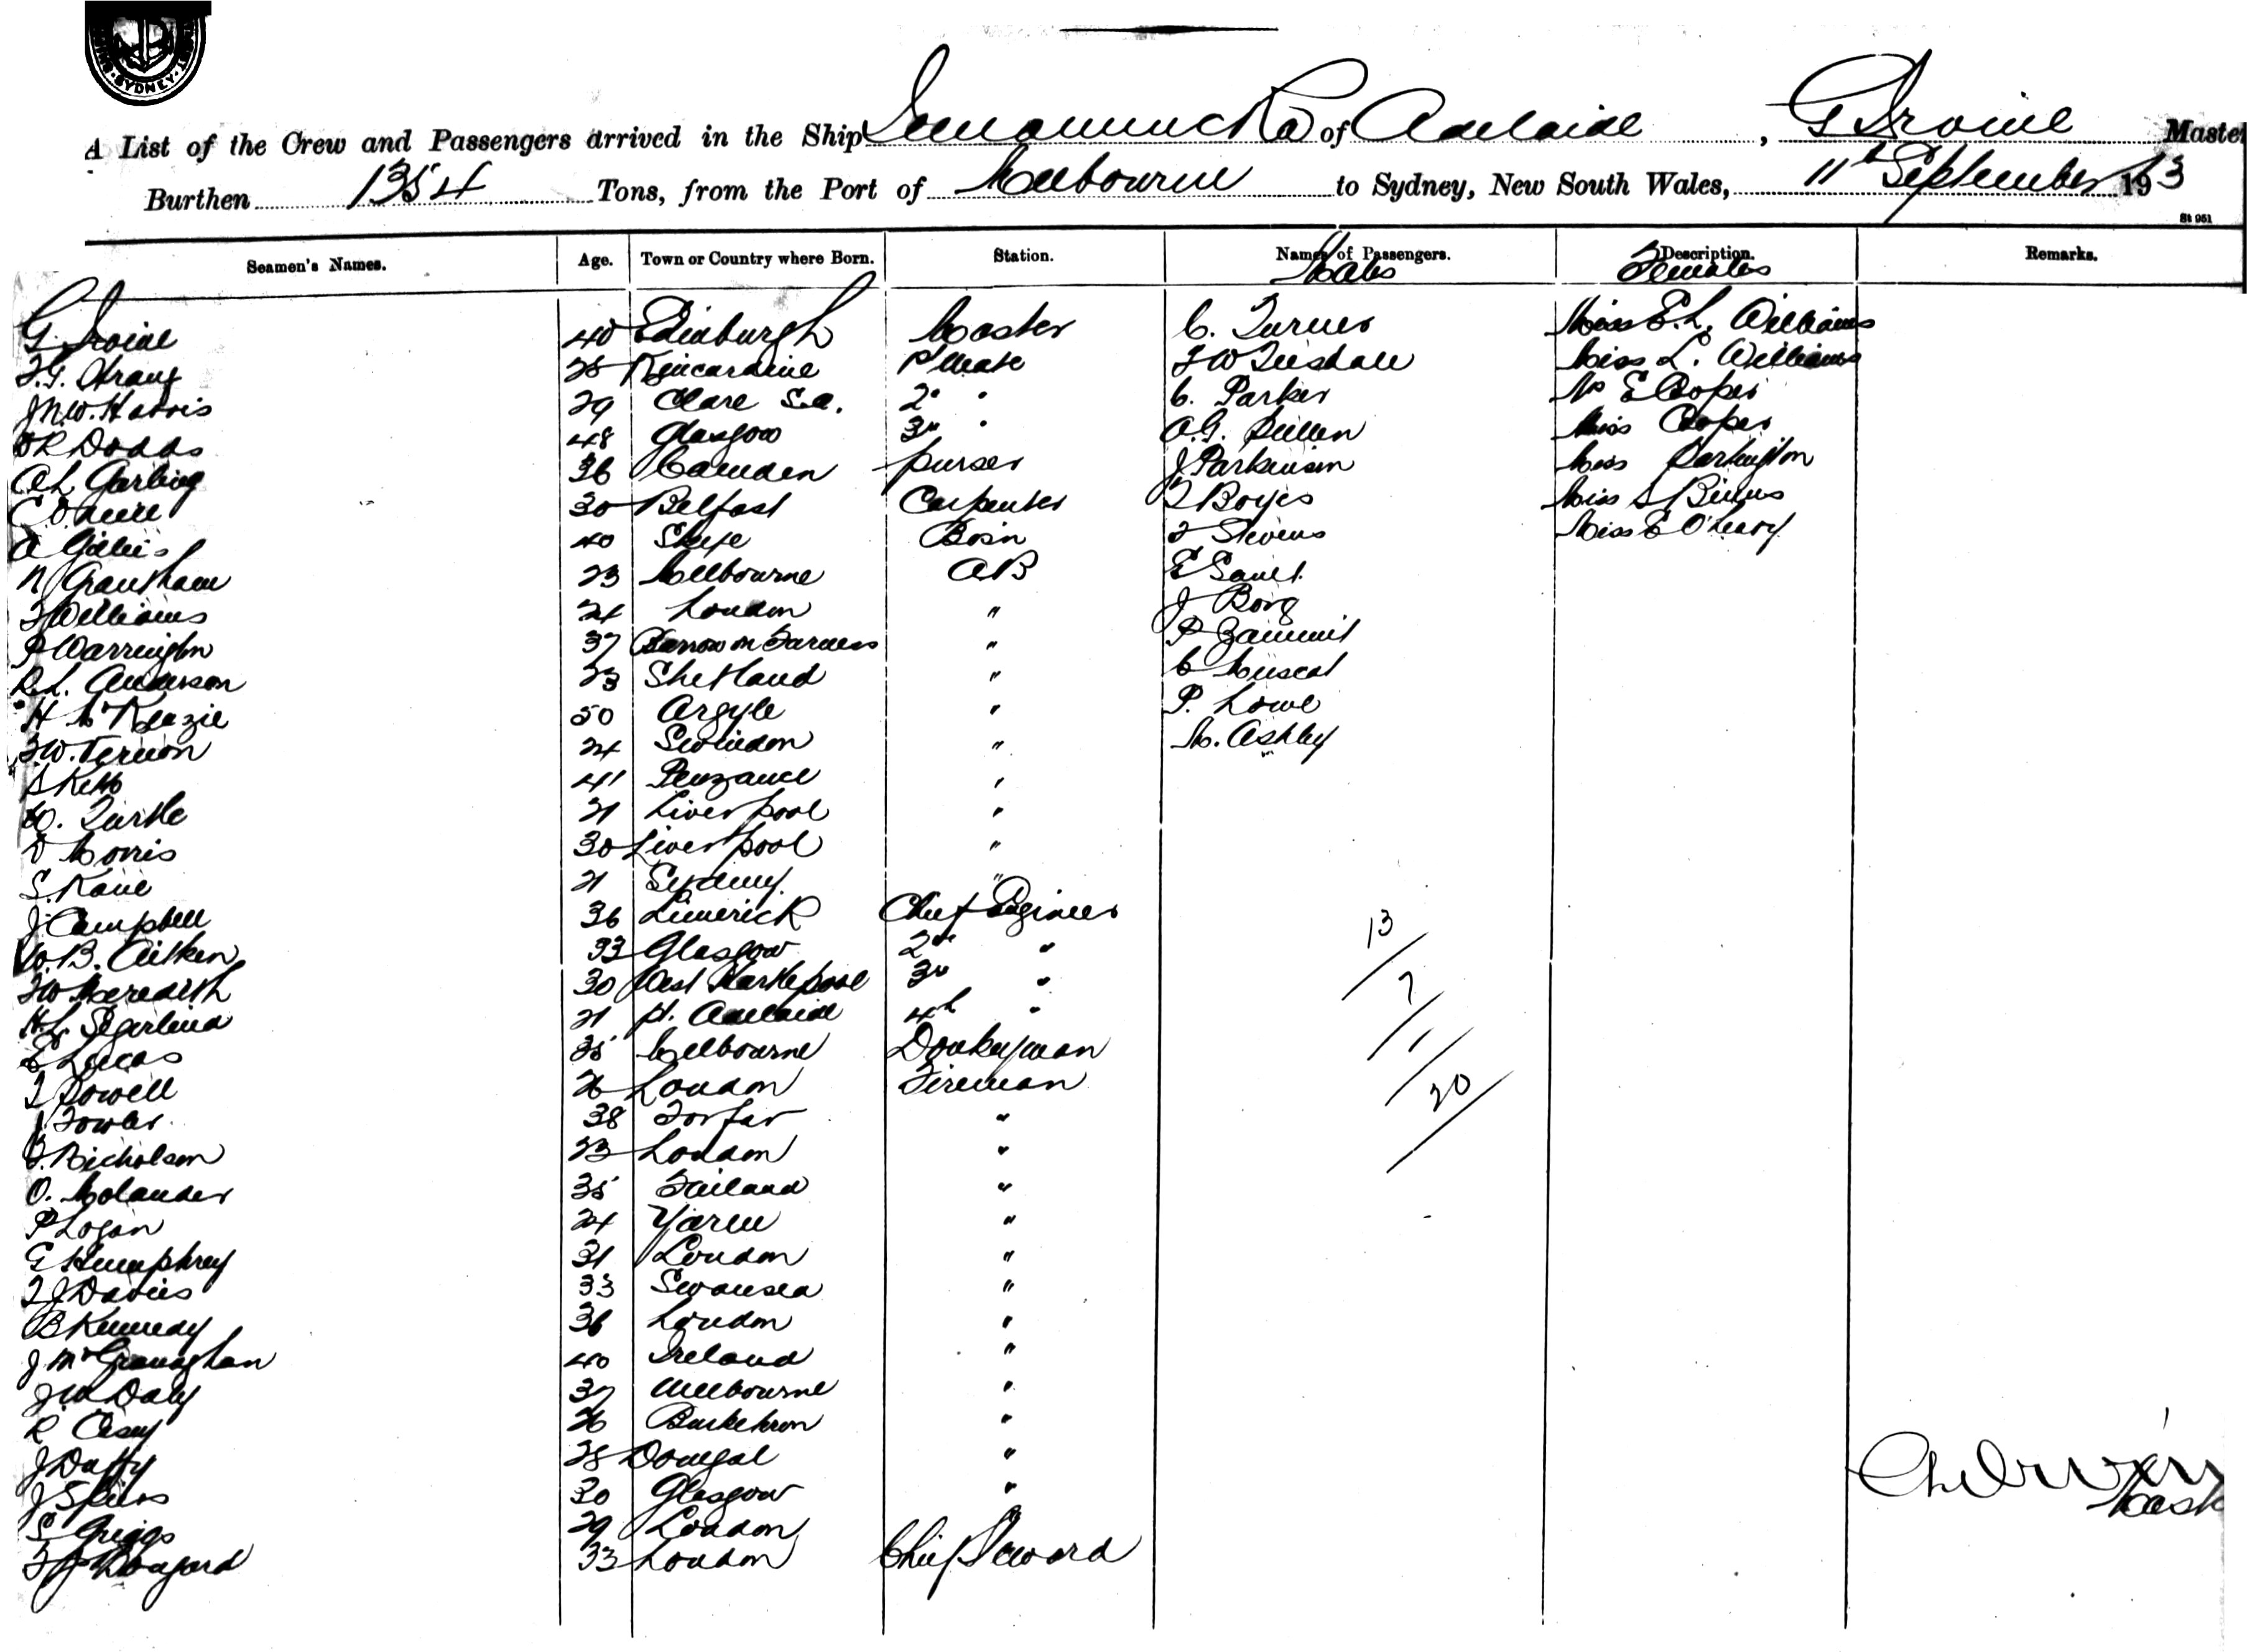 SYDNEY
A List of the Crew and Passengers arrived in the Ship of Adelaide, G Irvine Master
Burthen 1354 Tons, from the Port of Melbourne to Sydney, New South Wales, 11th September 1913
St 951
Seamen's Names. Age. Town or Country where Born. Station. Names of Passengers. Description. Remarks.
Males Females
G. Irvine 40 Edinburgh Master C. Turner Miss E.L. Williams
28 Kincardine 1st Mate Miss L. Williams
J.M.W. Harris 29 Clare S.A. 2nd " C. Parker E Cooper
Dodds 48 Glasgow 3rd " A.G. Pullen Miss Cooper
A L Garling 36 Camden Purser J Parkinson Miss Partington
E O'Neill 30 Belfast Carpenter T Boyes Miss S Binns
A Gillies 40 Skye Bosn T Stevens Miss E O'Leary
N Grantham 23 Melbourne AB
T Williams 24 London " J Borg
P Warrington 37 Barrow on Furness " P Zammit
R.L. Anderson 23 Shetland " C Muscat
H McKenzie 50 Argyle " P. Lowe
F.W. Vernon 24 Swindon " M. Ashby
41 Penzance "
W. Turtle 21 Liverpool "
D Morris 30 Liverpool "
S. Kane 21 Sydney "
J Campbell 36 Limerick Chief Engineer
W.B. Aitken 33 Glasgow 2nd " 13
F W Meredith 30 West Hartlepool 3rd " 7
H.L. 21 Pt. Adelaide 4th "
E Lucas 35 Melbourne Donkeyman
T Powell 26 London Fireman 20
J Fowler 38 Forfar "
T. Nicholson 23 London "
O. Molander 35 Finland "
P Logan 24 Yarm "
G Humphrey 31 London "
T J Davies 33 Swansea "
B Kennedy 36 London "
J McGranaghan 40 Ireland "
J W Daly 37 Melbourne "
R Casey 26 "
J Duffy 28 Donegal "
J Spiers 30 Glasgow "
S Griggs 29 London
33 London Chief Steward